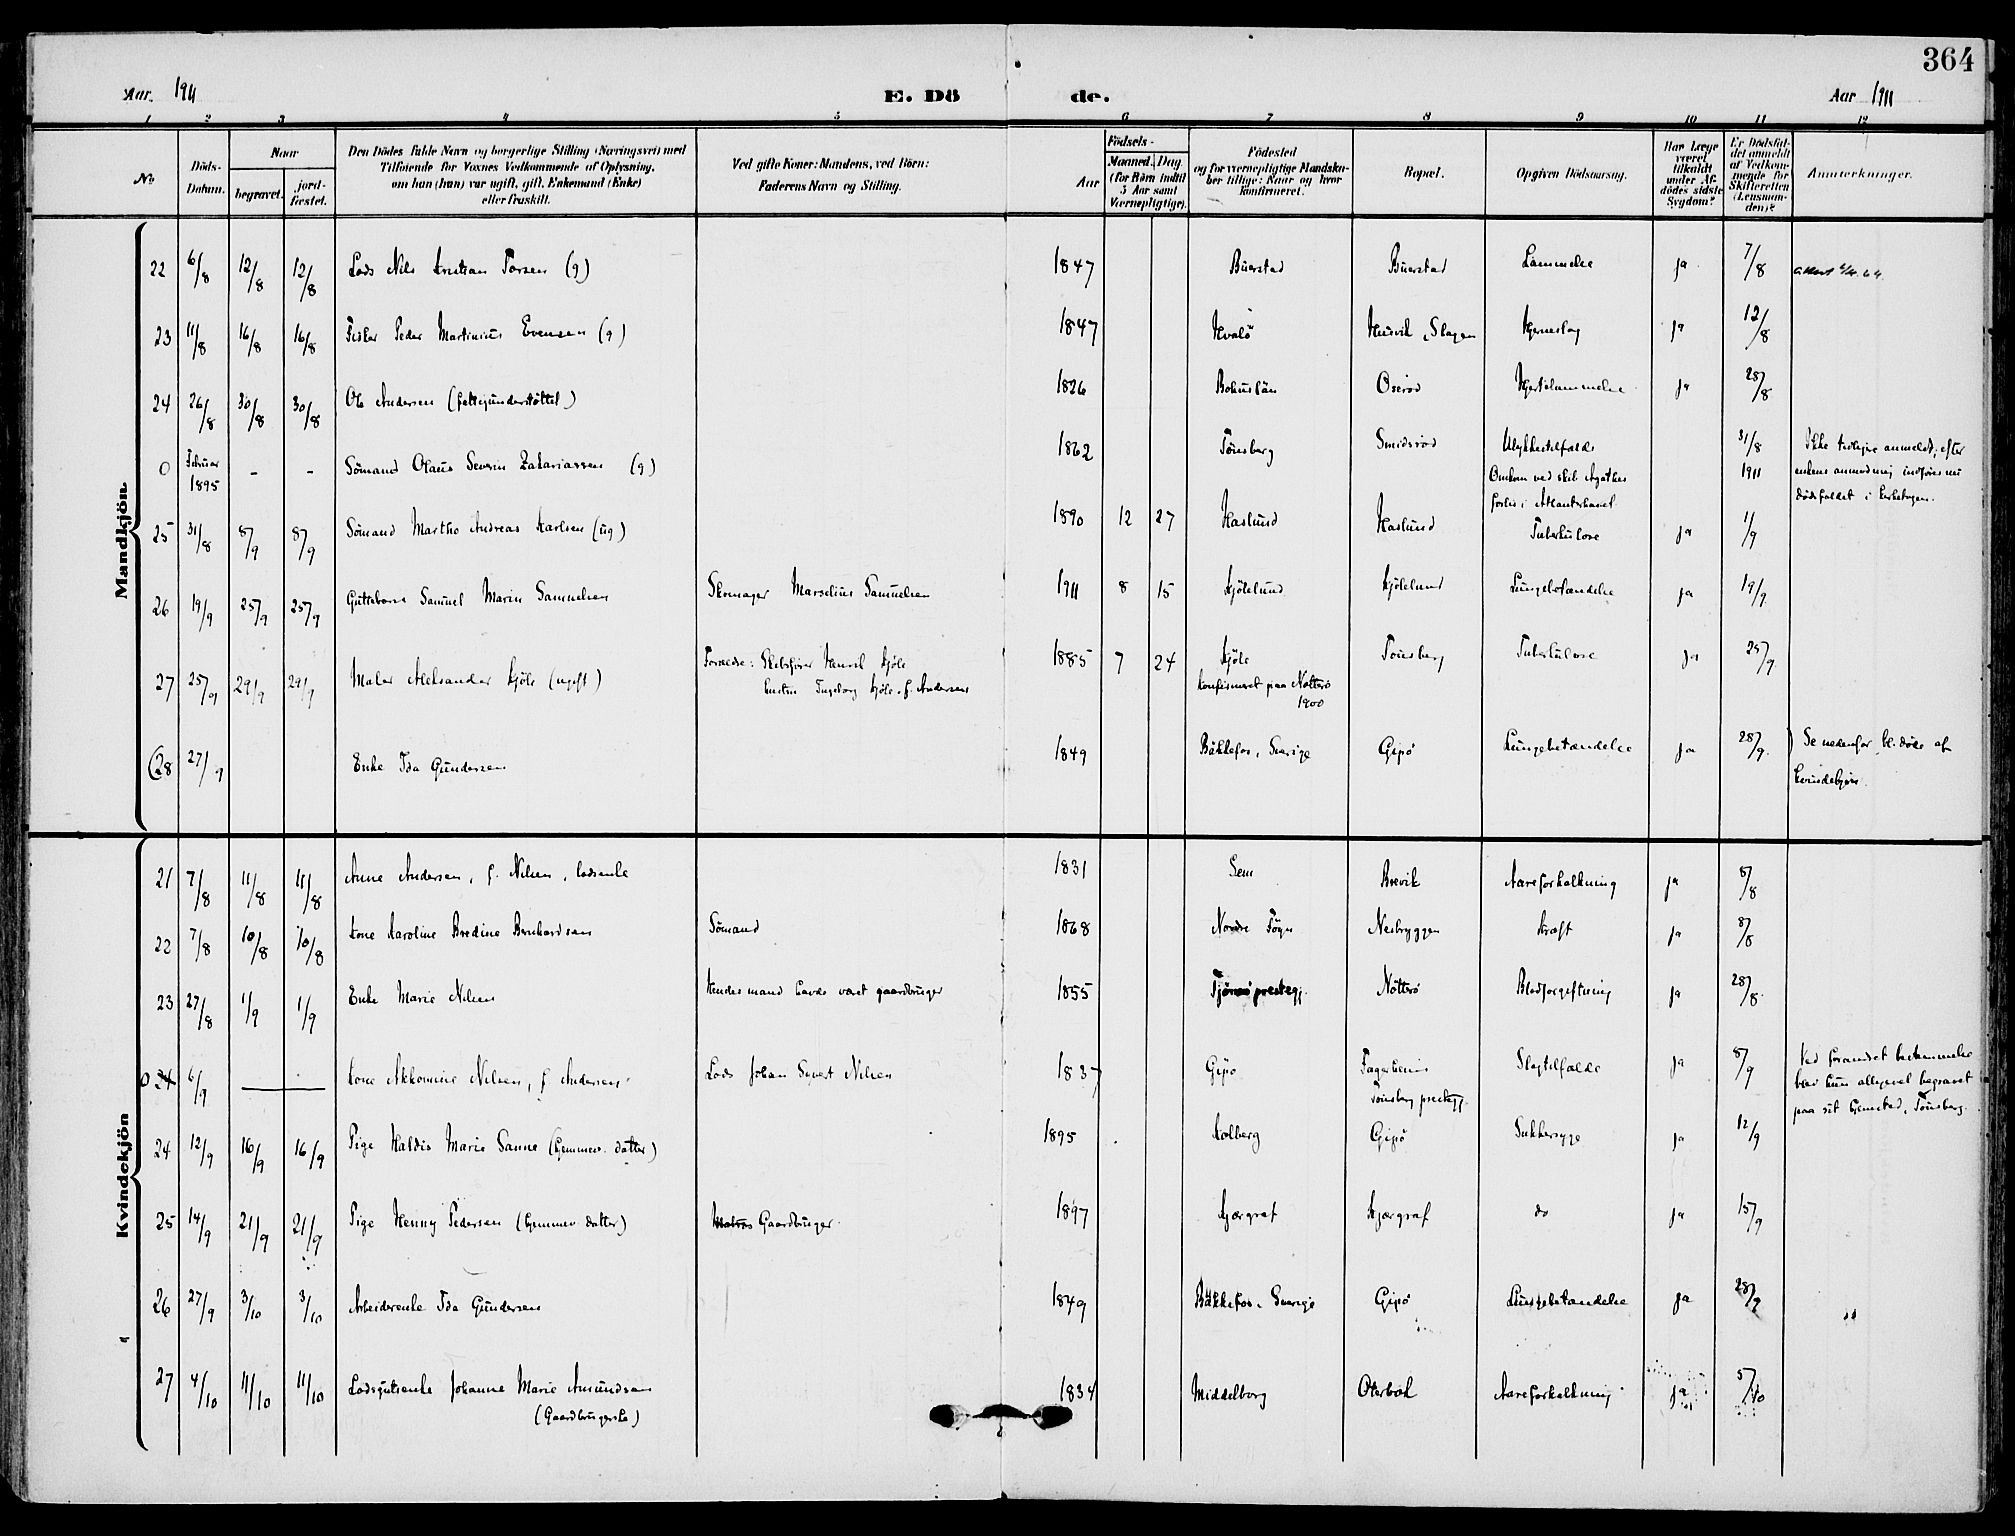 364
Aar 1911 E. Dö de. Aar 1911
1 2 3 4 5 6 7 8 9 10 11 12
No
Döds-
Datum.
Naar
begravet.
jord-
fæstet.
Den Dödes fulde Navn og borgerlige Stilling (Næringsvei) med
Tilföiende for Voxnes Vedkommende af Oplysning,
om han (hun) var ugift, gift, Enkemand (Enke)
eller fraskilt.
Ved gifte Koner: Mandens, ved Börn:
Faderens Navn og Stilling.
Födsels-
Aar
Maaned. Dag.
(for Börn indtil
5 Aar samt
Værnepligtige).
Födested
og for værnepligtige Mandska-
ber tillige: Naar og hvor
konfirmeret.
Bopæl.
Opgiven Dödsaarsag.
Har Læge
været
tilkaldt
under Af-
dödes sidste
Sygdom?
Er Dödsfal-
det anmeldt
af Vedkom-
mende for
Skifteretten
(Lensman-
den)?
Anmærkninger.
Mandkjön
22 6/8 12/8 12/8 Lods Nils Kristian Torsen (g) 1847 Buerstad Buerstad Lammelse ja 7/8
23 11/8 16/8 16/8 Fisker Peder Martinius Evensen (g) 1847 Hvalö Husvik, Slagen Hjerneslag ja 12/8
24 26/8 30/8 30/8 Ole Andersen (fattigunderstöttet) 1826 Bohuslän Oserød Hjertelammelse ja 28/8
0 Februar 1895 - - Sömand Olaus Severin Zakariassen (g) 1862 Tönsberg Smidsrød Ulykkestilfælde 31/8 1911
Omkom ved skib Agathes
forlis i Atlanterhavet
Ikke tidligere anmeldt; efter
enkens anmodning indföres nu
dödsfaldet i kirkebogen.
25 31/8 8/9 8/9 Sömand Martho Andreas Karlsen (ug) 1890 12 27 Haslund Haslund Tuberkulose ja 1/9
26 19/9 25/9 25/9 Guttebarn Samuel Marin Samuelsen Skomager Marselius Samuelsen 1911 8 15 Kjölelund Kjölelund Lungebetændelse ja 19/9
27 25/9 29/9 29/9 Maler Aleksander Kjöle (ugift) Forældre: Skibsförer Henrik Kjöle 1885 7 24 Kjöle Tönsberg Tuberkulose ja 25/9
hustru Ingeborg Kjöle f. Andersen
konfirmeret paa Nötterö
1900
(28 27/9 Enke Ida Gundersen 1849 Bäkkefos, Sverige Gipö Lungebetændelse ja 28/9 ) Se nedenfor bl. döde af
kvindekjön.
Kvindekjön
21 7/8 11/8 11/8 Anne Andersen, f. Nilsen, lodsenke 1831 Sem Brevik Aareforkalkning ja 8/8
22 7/8 10/8 10/8 Kone Karoline Bredine Bernhardsen Sömand 1868 Nordre Föyn Nesbryggen Kræft ja 8/8
23 27/8 1/9 1/9 Enke Marie Nilsen Hendes mand havde været gaardbruger 1855 Tjömö prestegj. Nötterö Blodforgiftning ja 28/8
0 24 6/9 Kone Akkomine Nilsen, f Andersen Lods Johan Syvert Nilsen 1837 Gipö Fagerheim Slagtilfælde ja 8/9
Tönsberg prestegj.
Ved forandret bestemmelse
blev hun alligevel begravet
paa sit hjemsted, Tönsberg.
24 12/9 16/9 16/9 Pige Haldis Marie Sanne (hjemmev. datter) 1895 Kolberg Gipö Sukkersyge ja 12/9
25 14/9 21/9 21/9 Pige Henny Pedersen (hjemmev. datter) Gaardbruger 1897 Kjærgraf Kjærgraf do ja 15/9
26 27/9 3/10 3/10 Arbeiderenke Ida Gundersen 1849 Bäkkefos, Sverige Gipö Lungebetændelse ja 28/9
27 4/10 11/10 11/10 Lodsgutsenke Johanne Marie Amundsen 1834 Middelborg Oterbæk Aareforkalkning ja 5/10
(Gaardbrugerske)